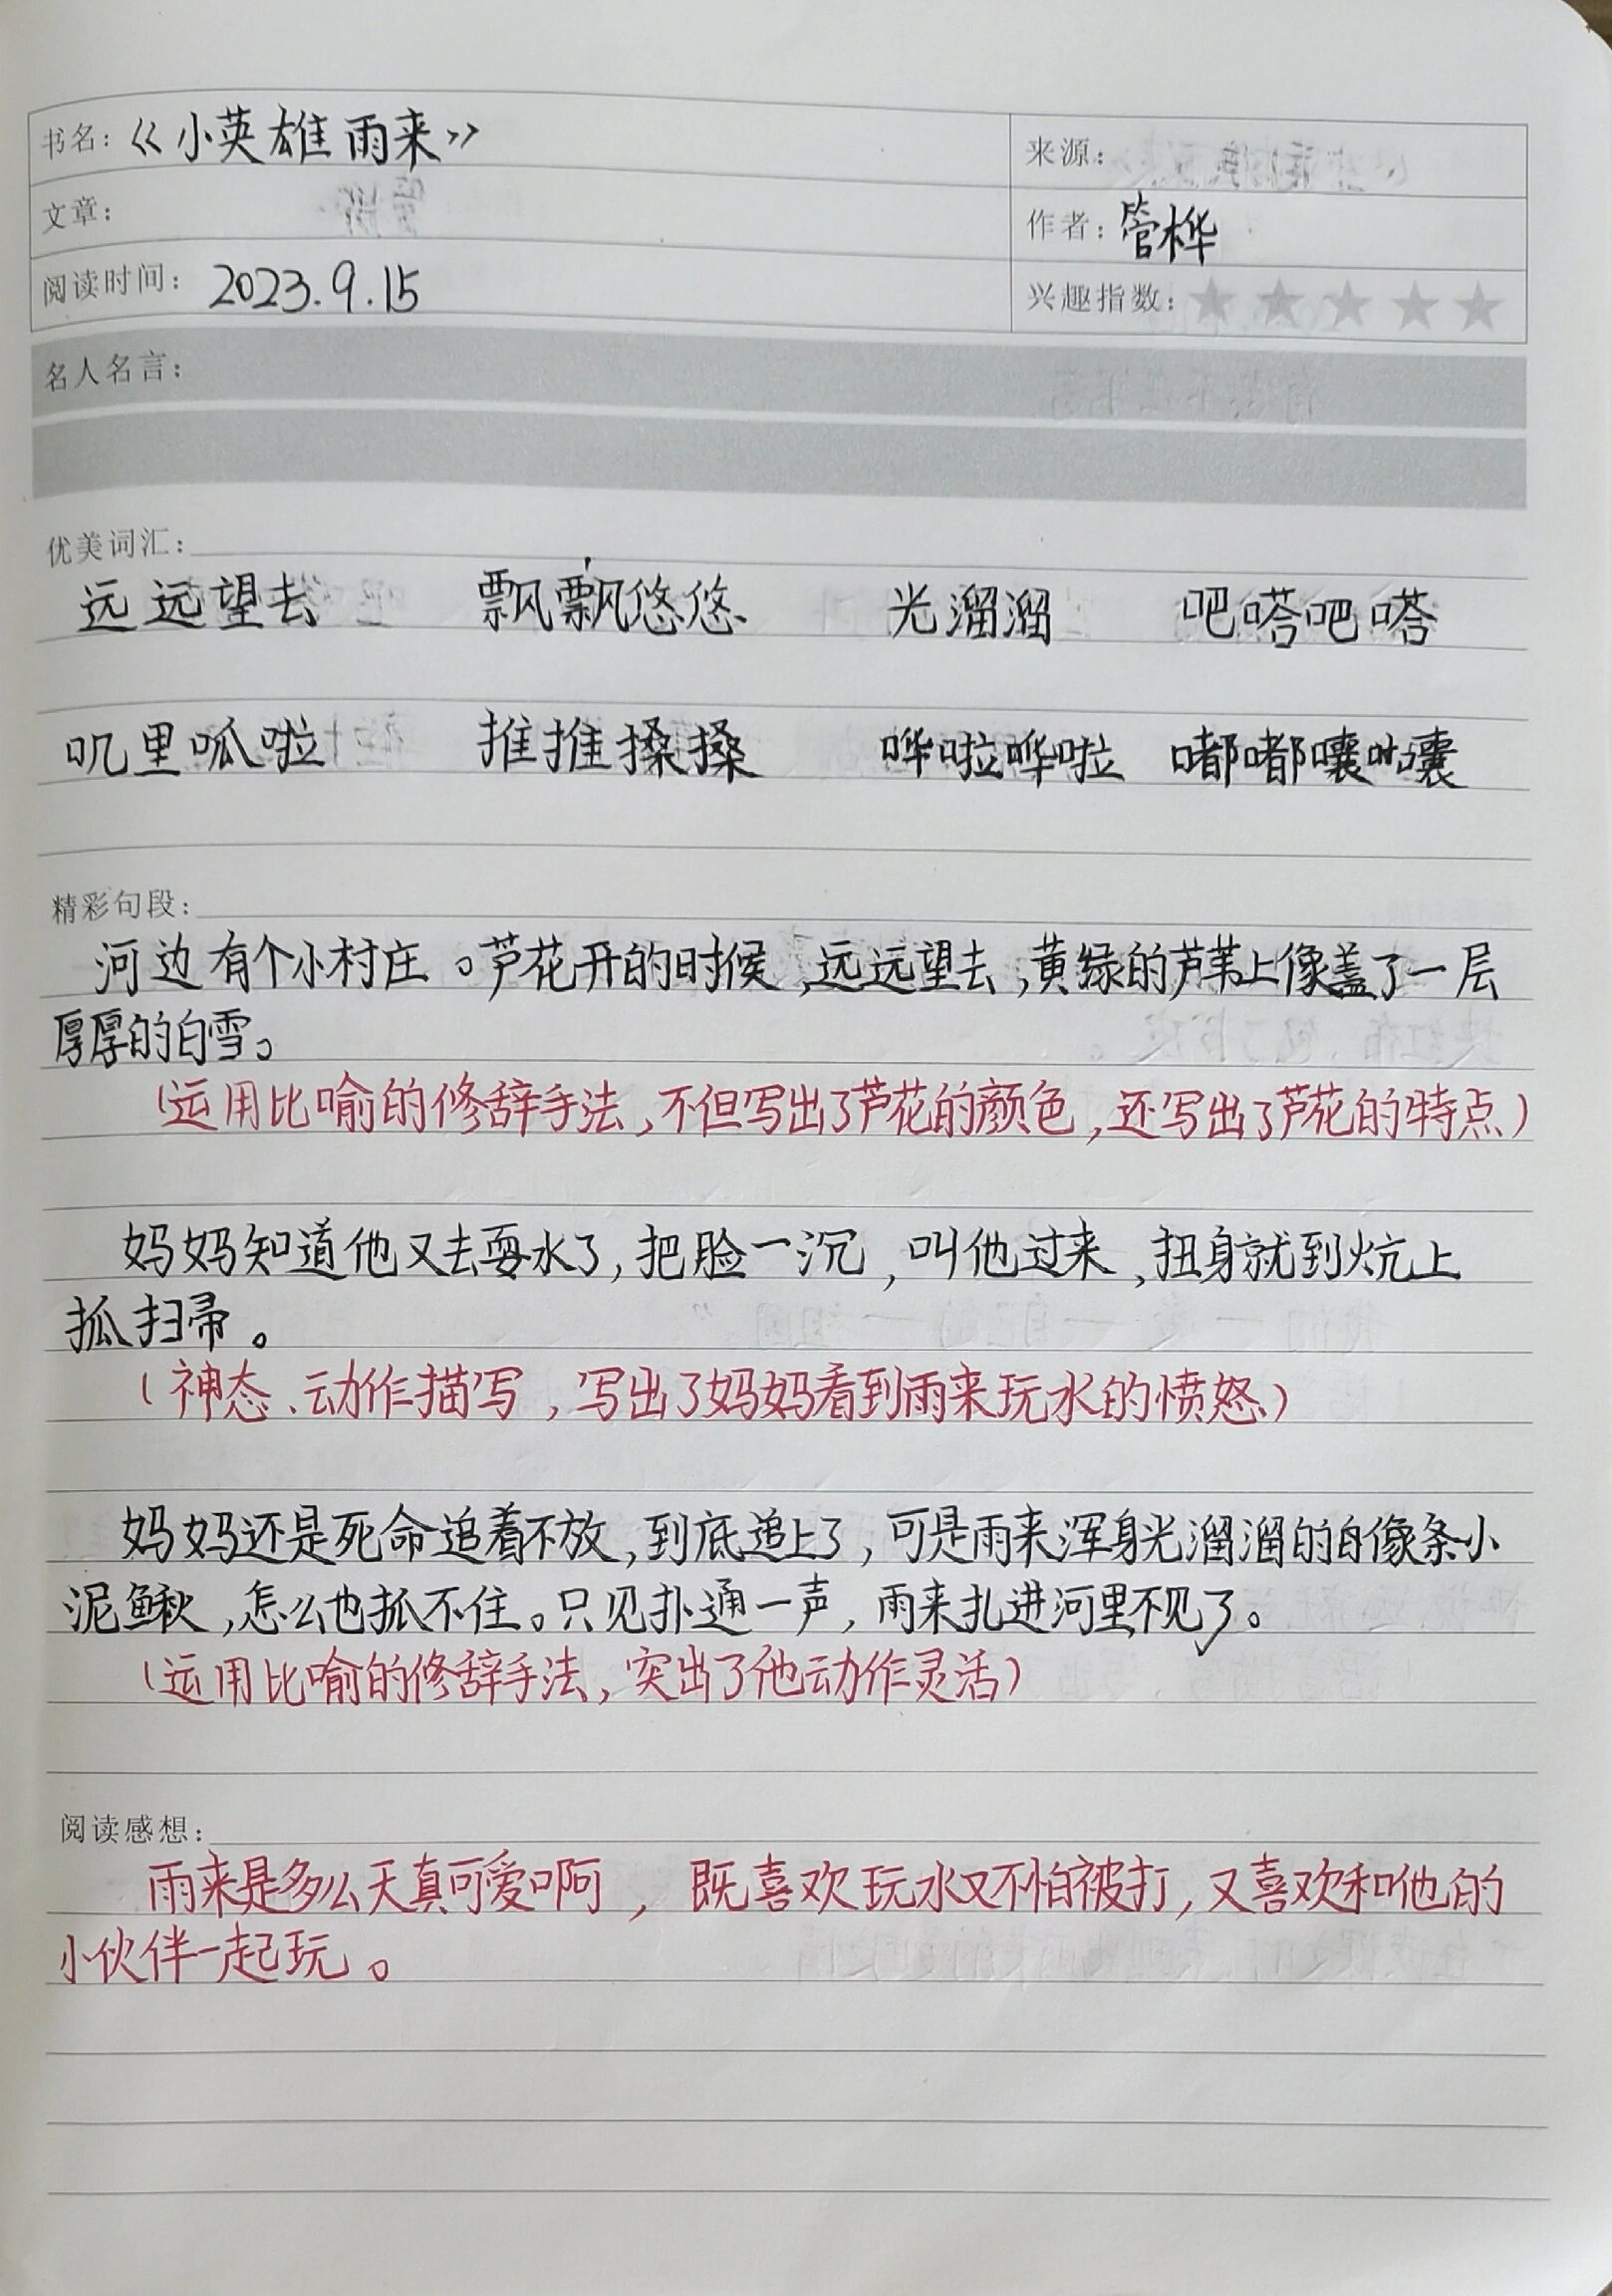 书名：《小英雄雨来》
来源：
文章：
作者：管桦
阅读时间：2023.9.15
兴趣指数：★★★★★
名人名言：
优美词汇：
远远望去 飘飘悠悠 光溜溜 吧嗒吧嗒
叽里呱啦 推推搡搡 哗啦哗啦 嘟嘟囔囔
精彩句段：
河边有个小村庄。芦花开的时候，远远望去，黄绿的芦苇上像盖了一层
厚厚的白雪。
（运用比喻的修辞手法，不但写出了芦花的颜色，还写出了芦花的特点）
妈妈知道他又去耍水了，把脸一沉，叫他过来，扭身就到炕上
抓扫帚。
（神态、动作描写，写出了妈妈看到雨来玩水的愤怒）
妈妈还是死命追着不放，到底追上了，可是雨来浑身光溜溜的像条小
泥鳅，怎么也抓不住。只见扑通一声，雨来扎进河里不见了。
（运用比喻的修辞手法，突出了他动作灵活）
阅读感想：
雨来是多么天真可爱啊，既喜欢玩水又不怕被打，又喜欢和他的
小伙伴一起玩。